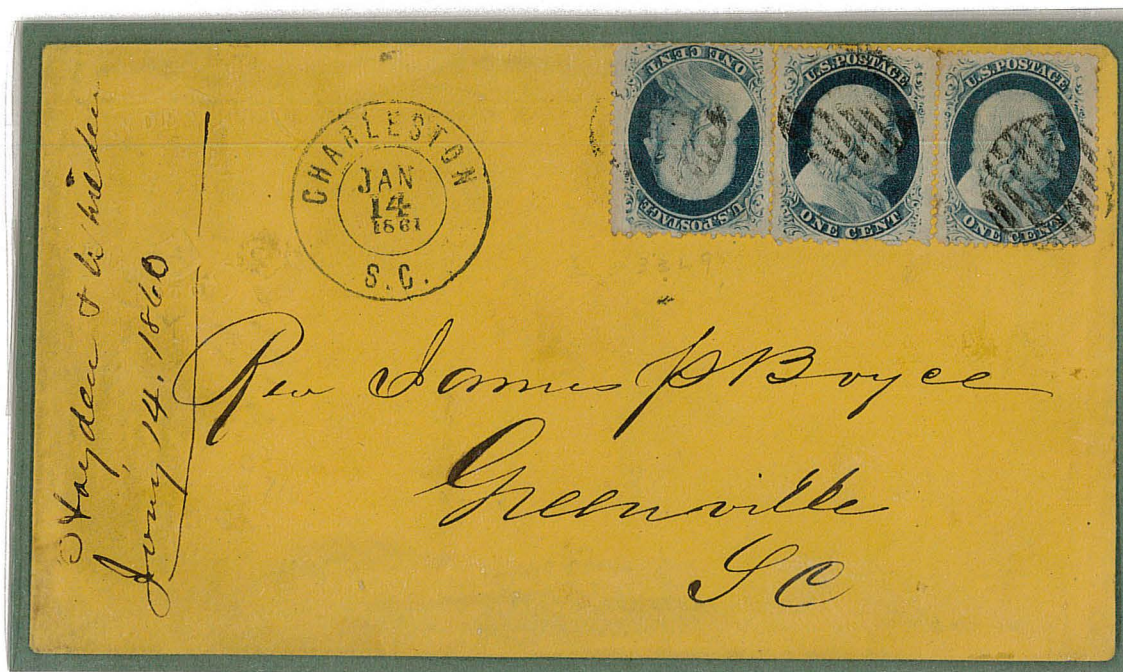 Hayden & Whilden
Jany 14, 1860
CHARLESTON
JAN
14
1861
S.C.
ONE CENT
U.S. POSTAGE
U.S. POSTAGE
ONE CENT
U.S. POSTAGE
ONE CENT
3229
Rev James P Boyce
Greenville
S C